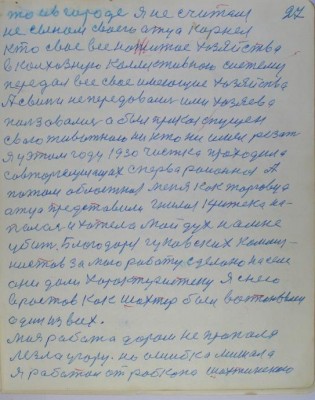 то и в городе Я не считал 27
не сыном своего отца Корнея
Кто свое все нажитое хозяйства
в колхозную коллективною систему
передал все свое имеющие хозяйства
А свини не передовали ими хозяева
ползовались а был приказ пущен
свого животново ни кто ни имел резат
Я у этом году 1930 чистка проходила
совторгслужащих сперва районная А
потом областная Меня как торговца
отца представили Гнилая
и хотела мой дух на мне
убит. Благодоря гуковских Комму-
нистов за мою работу сделано на селе
они дали характеристику Я с него
в ростов как шахтер был востоновлен
один из всех.
моя работа даром не пропала
лезла угору. но ошибка мишала
Я работал от робкопа шахтинского